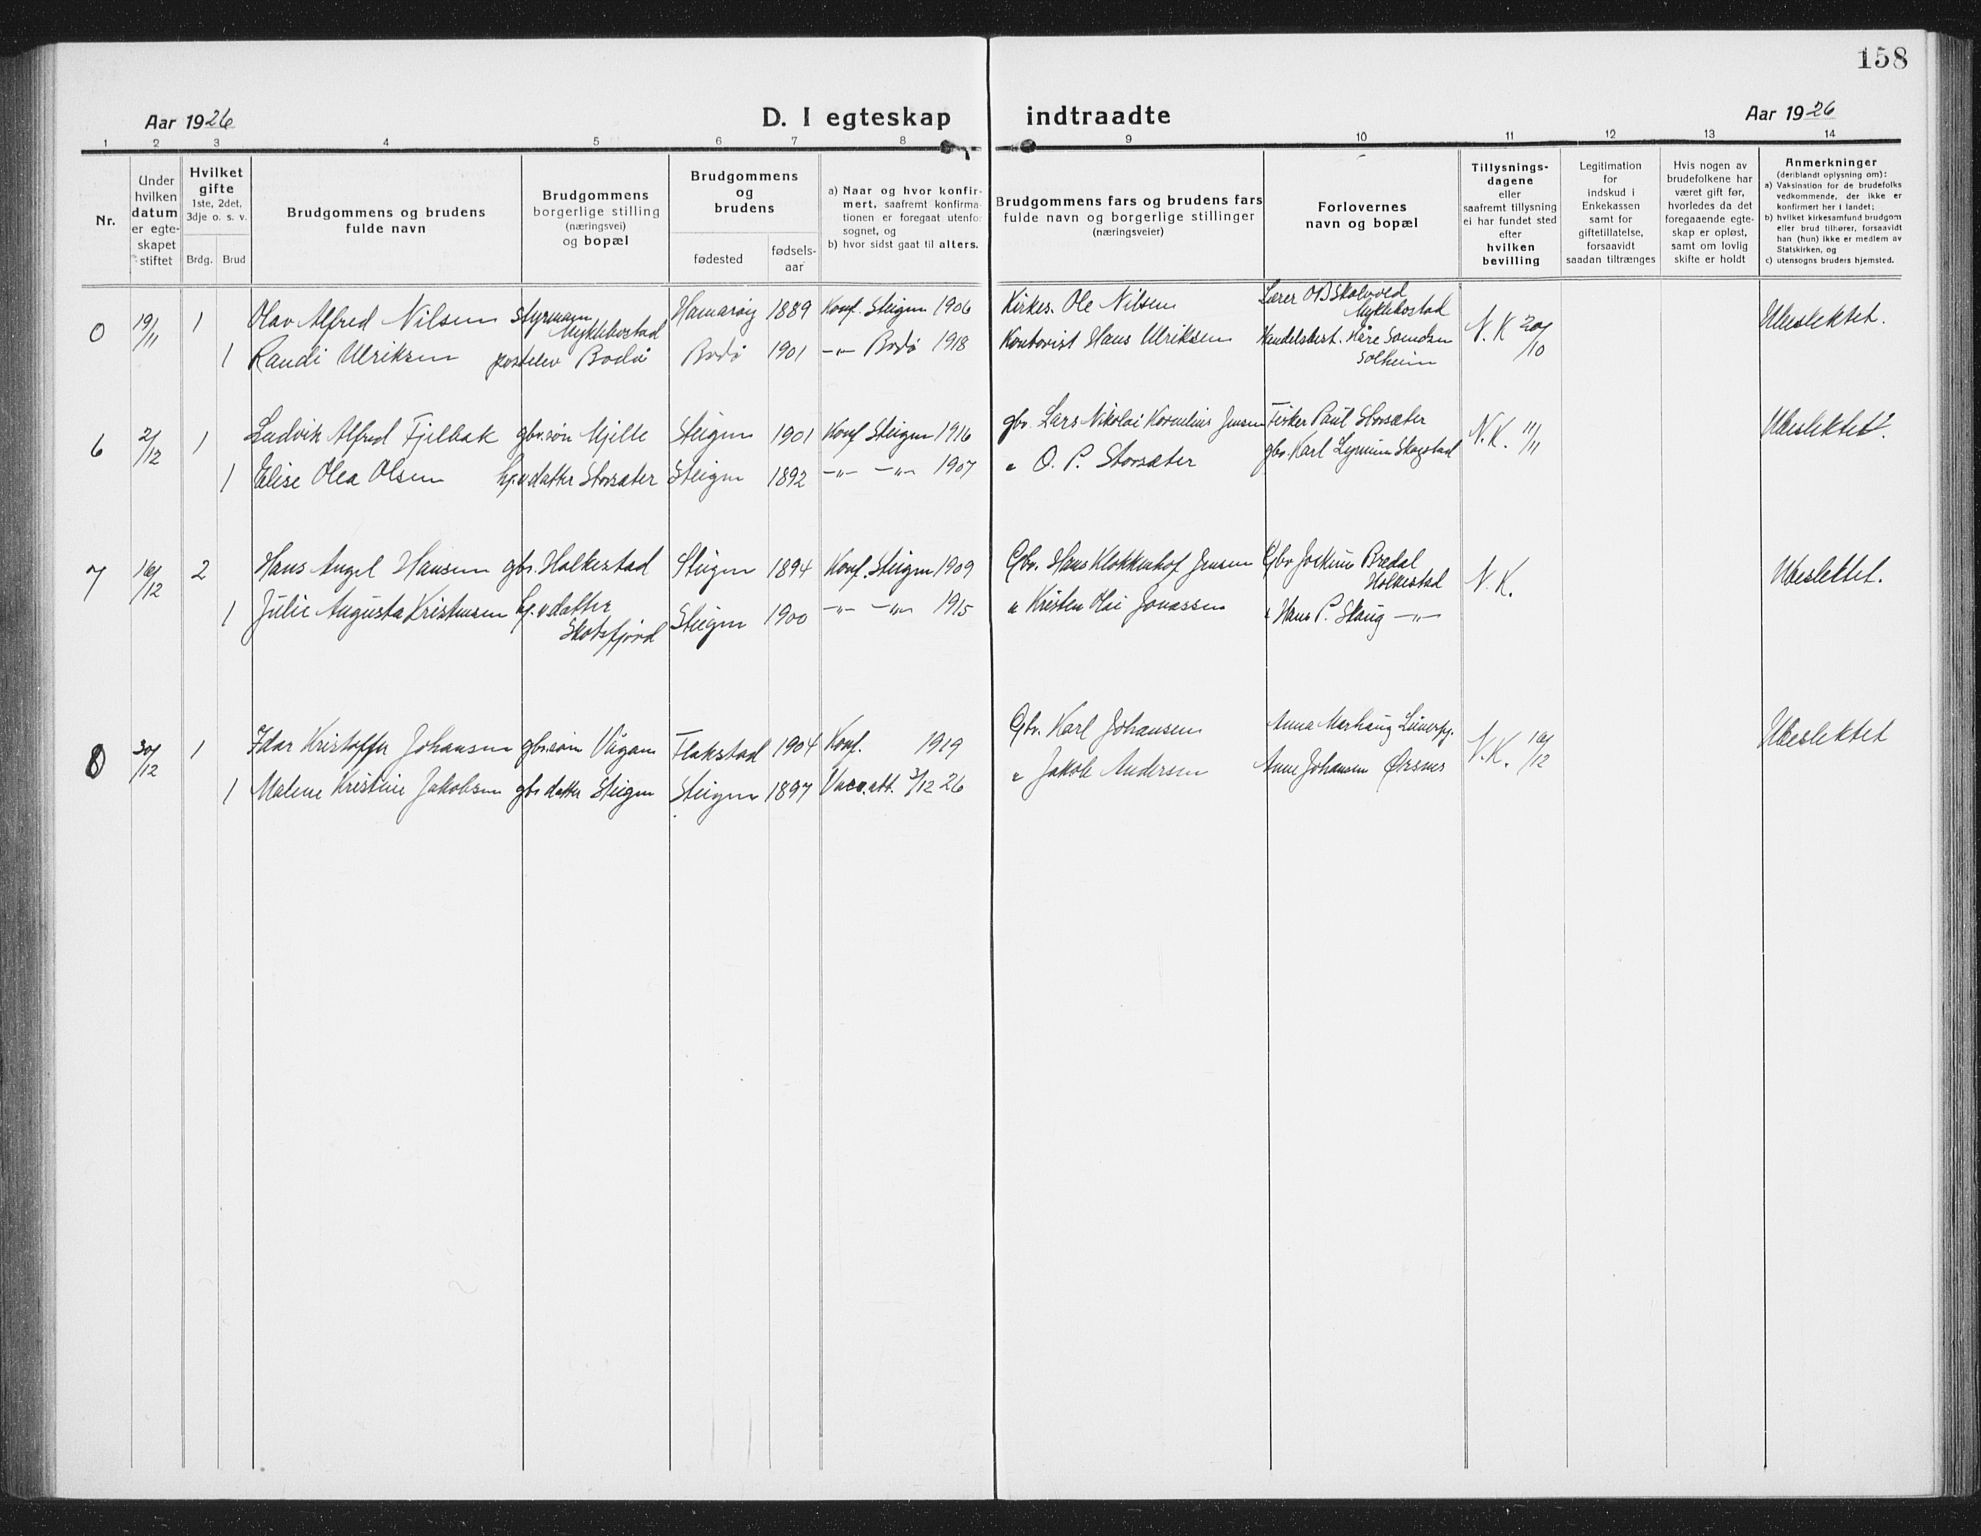 158
Aar 1926 D. I egteskap indtraadte Aar 1926
1 2 3 4 5 6 7 8 9 10 11 12 13 14
Nr.
Under hvilken datum er egteskapet stiftet
Hvilket gifte 1ste, 2det, 3dje o. s. v.
Brdg. Brud
Brudgommens og brudens fulde navn
Brudgommens borgerlige stilling (næringsvei) og bopæl
Brudgommens og brudens
fødested fødselsaar
a) Naar og hvor konfirmert, saafremt konfirmationen er foregaat utenfor sognet, og
b) hvor sidst gaat til alters.
Brudgommens fars og brudens fars fulde navn og borgerlige stillinger (næringsveier)
Forlovernes navn og bopæl
Tillysningsdagene eller saafremt tillysning ei har fundet sted efter hvilken bevilling
Legitimation for indskud i Enkekassen samt for giftetillatelse, forsaavidt saadan tiltrænges
Hvis nogen av brudefolkene har været gift før, hvorledes da det foregaaende egteskap er opløst, samt om lovlig skifte er holdt
Anmerkninger (deriblandt oplysning om):
a) Vaksination for de brudefolks vedkommende, der ikke er konfirmert her i landet;
b) hvilket kirkesamfund brudgom eller brud tilhører, forsaavidt han (hun) ikke er medlem av Statskirken, og
c) utensogns bruders hjemsted.
0 19/11 1 Olav Alfred Nilsen styrmann Myklebostad Hamarøy 1889 Konf. Steigen 1906 Kirkes. Ole Nilsen Lærer Myklebostad N. K 20/10 Ubeslektet.
1 Randi Ulriksen postelev Bodø Bodø 1901 -"- Bodø 1918 Kontorist Hans Ulriksen Handelsbest. Solheim
6 2/12 1 Ludvik Alfred Fjelbak gbr.søn Mjelle Steigen 1901 Konf Steigen 1916 gbr. Lars Nikolai Kornelius Jensen Fisker Paul Storsæter N. K. 11/11 Ubeslektet.
1 Elise Olea Olsen datter Storsæter Steigen 1892 -"- -"- 1907 " O. P. Storsæter gbr. Karl Skogstad
7 16/12 2 Hans Angel Hansen gbr. Holkestad Steigen 1894 Konf. Steigen 1909 Gbr. Hans Klokkenhof Jensen Gbr Joakim Bredal Holkestad N. K. Ubeslektet.
1 Julie Augusta Kristensen datter Skotsfjord Steigen 1900 -"- -"- 1915 " Kristen Olai Jonassen " Hans P. Skaug -"-
8 30/12 1 Idar Kristoffer Johansen gbr.søn Vågan Flakstad 1904 Konf. 1919 Gbr. Karl Johansen Anna Marhaug N. K. 16/12 Ubeslektet
1 Malene Kristine Jakobsen gbr datter Steigen Steigen 1897 Vacc.att. 3/12 26 " Jakob Andersen Anne Johansen Ørsnes